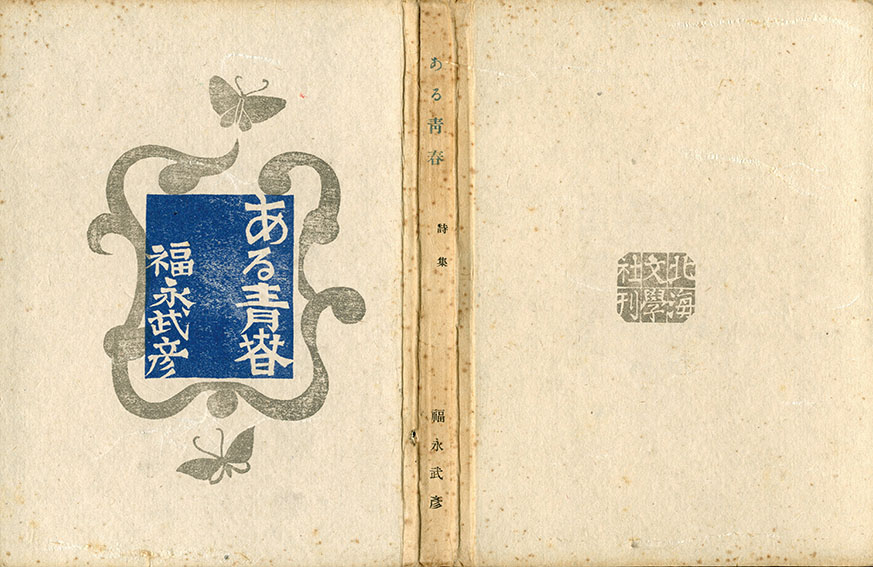 ある青春
福永武彦
ある青春
詩集
福永武彦
北海
文學
社刊